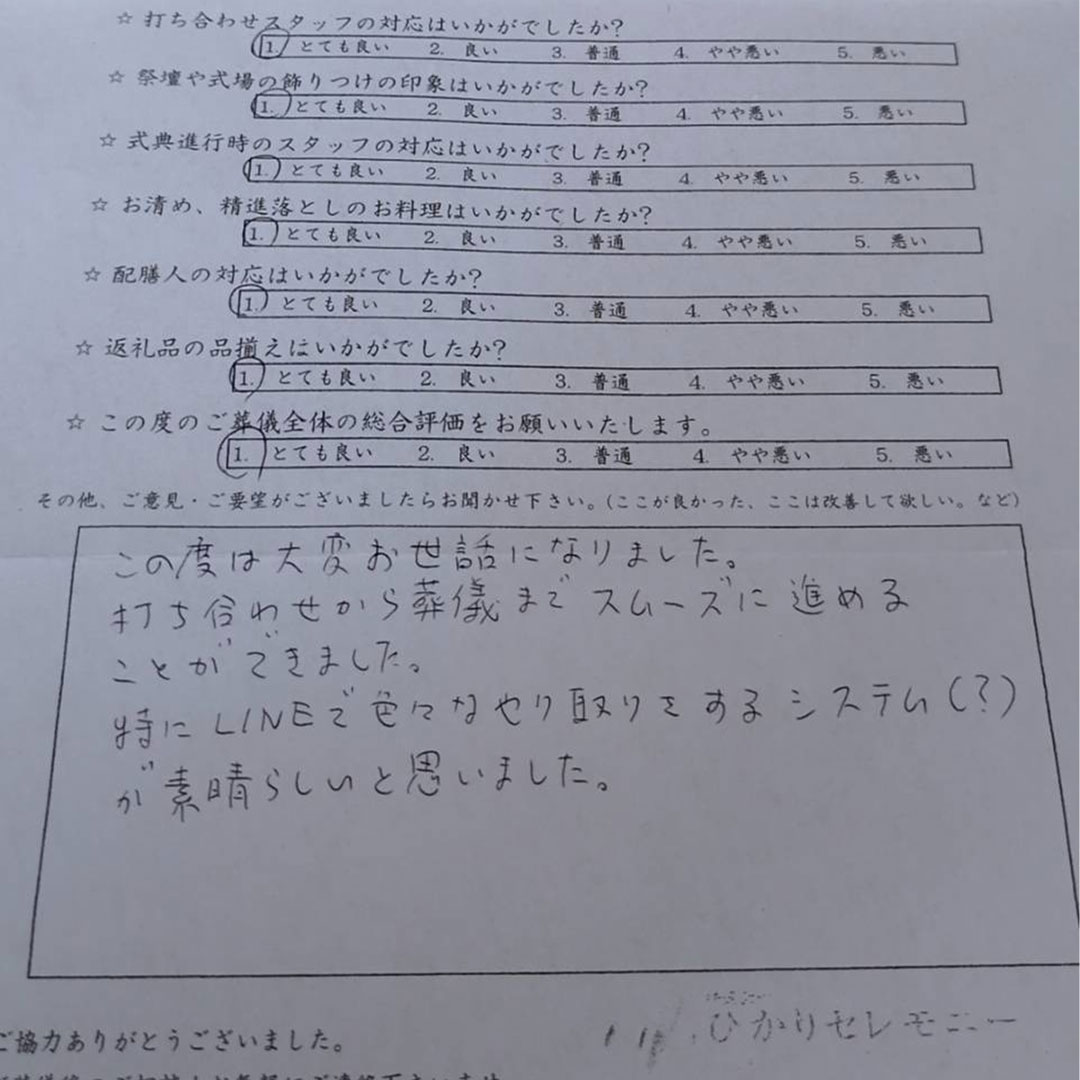 ☆ 打ち合わせスタッフの対応はいかがでしたか?
1. とても良い 2. 良い 3. 普通 4. やや悪い 5. 悪い
☆ 祭壇や式場の飾りつけの印象はいかがでしたか?
1. とても良い 2. 良い 3. 普通 4. やや悪い 5. 悪い
☆ 式典進行時のスタッフの対応はいかがでしたか?
1. とても良い 2. 良い 3. 普通 4. やや悪い 5. 悪い
☆ お清め、精進落としのお料理はいかがでしたか?
1. とても良い 2. 良い 3. 普通 4. やや悪い 5. 悪い
☆ 配膳人の対応はいかがでしたか?
1. とても良い 2. 良い 3. 普通 4. やや悪い 5. 悪い
☆ 返礼品の品揃えはいかがでしたか?
1. とても良い 2. 良い 3. 普通 4. やや悪い 5. 悪い
☆ この度のご葬儀全体の総合評価をお願いいたします。
1. とても良い 2. 良い 3. 普通 4. やや悪い 5. 悪い
その他、ご意見・ご要望がございましたらお聞かせ下さい。(ここが良かった、ここは改善して欲しい。など)
この度は大変お世話になりました。
打ち合わせから葬儀までスムーズに進める
ことができました。
特にLINEで色々なやり取りをするシステム(?)
が素晴らしいと思いました。
ひかりセレモニー
ご協力ありがとうございました。